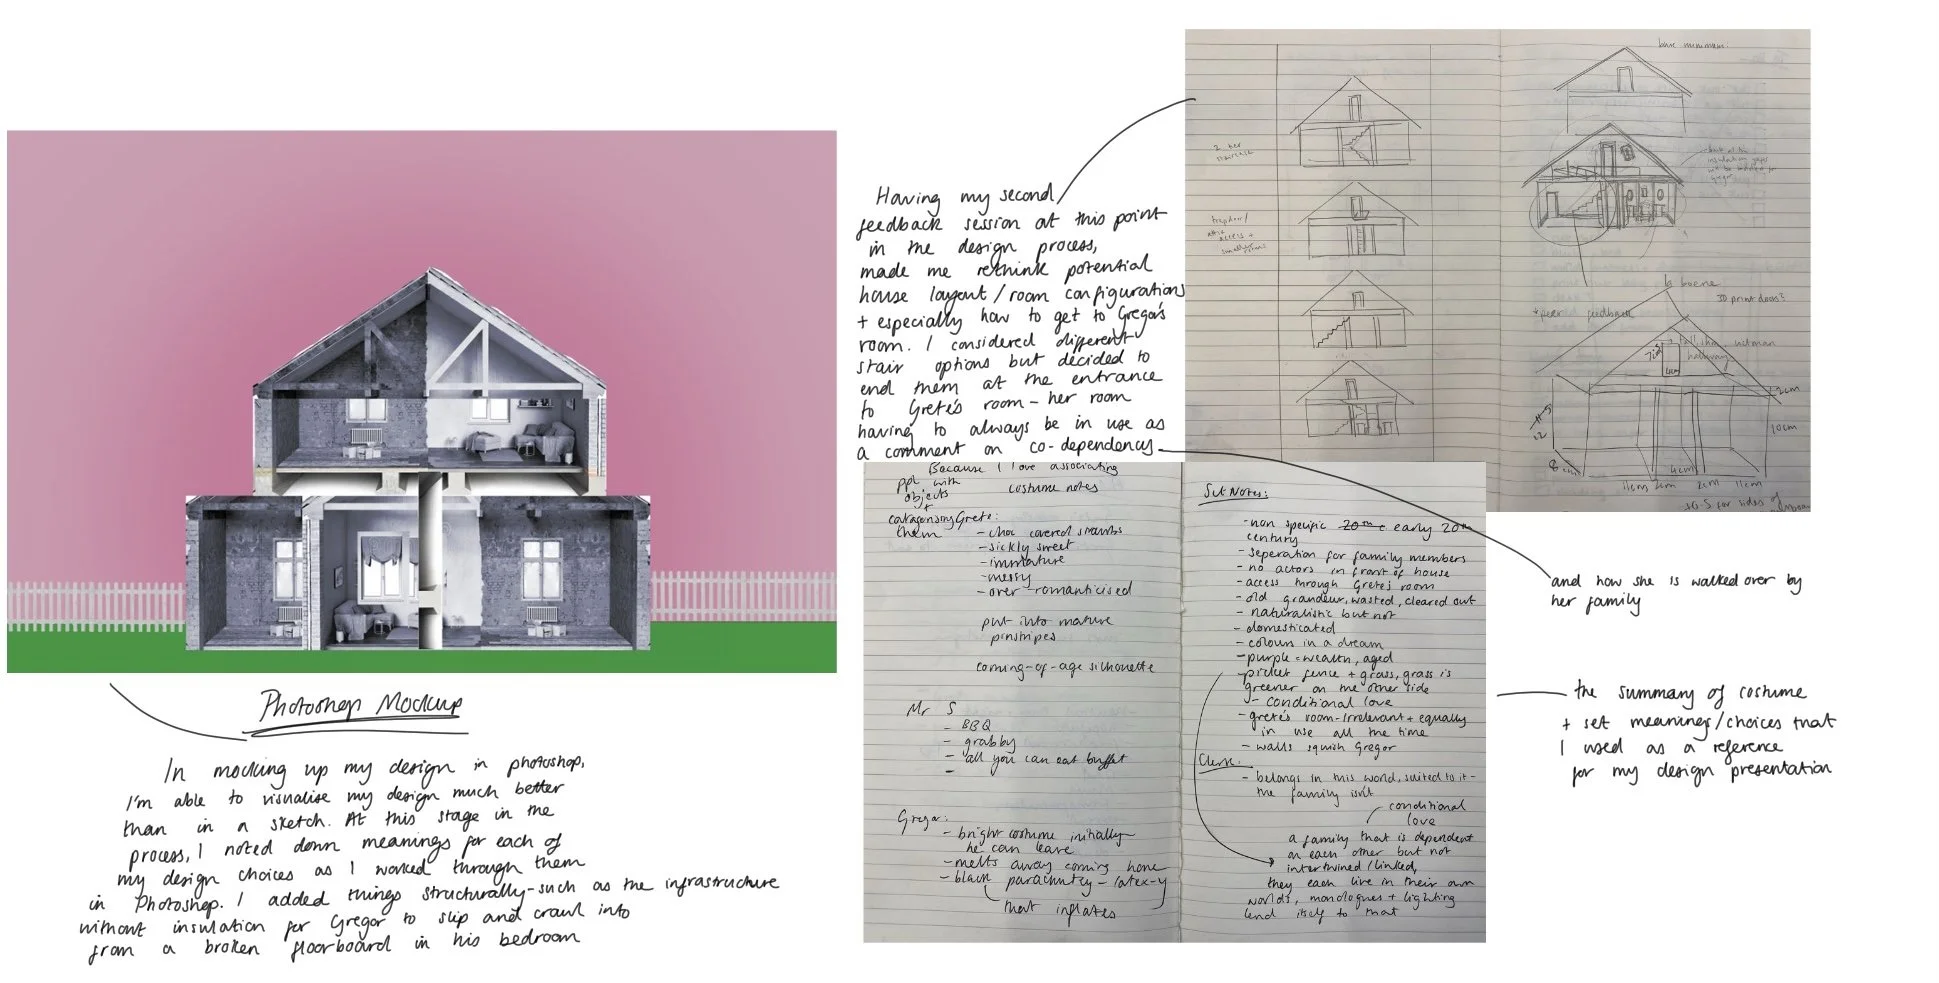 Photoshop Mockup
In mocking up my design in photoshop,
I'm able to visualise my design much better
than in a sketch. At this stage in the
process, I noted down meanings for each of
my design choices as I worked through them
in Photoshop. I added things structurally-such as the infrastructure
without insulation for Gregor to slip and crawl into
from a broken floorboard in his bedroom
Having my second
feedback session at this point
in the design process,
made me rethink potential
house layout/room configurations
+ especially how to get to Gregor's
room. I considered different
stair options but decided to
end them at the entrance
to Grete's room - her room
having to always be in use as
a comment on co-dependency
and how she is walked over by
her family
2 tier
staircase
trapdoor/
attic
access +
bare minimum:
insulation gaps
gregor
la boeme
3D print doors?
*peer feedback
hallway
7cm
4cm
2cm
10cm
12
8cm
11cm 2cm 4cm 2cm 11cm
Because I love associating
ppl with
objects
+
catagorising
them
costume notes
Grete:
- choc covered strawbs
- sickly sweet
- immature
- messy
- over-romanticised
put into mature
pinstripes
coming-of-age silhouette
Mr S
- BBQ
- grabby
- all you can eat buffet
-
Gregor:
- bright costume initially
he can leave
- melts away coming home
- black parachutey - latex-y
that inflates
Set Notes:
- non specific 20th c early 20th
century
- seperation for family members
- no actors in front of house
- access through Grete's room
- old grandeur, wasted, cleared out
- naturalistic but not
- domesticated
- colours in a dream
- purple = wealth, aged
- picket fence + grass, grass is
greener on the other side
- conditional love
- grete's room - irrelevant + equally
in use all the time
- walls squish Gregor
Clerk:
- belongs in this world, suited to it -
the family isn't
conditional
love
a family that is dependent
on each other but not
intertwined/linked,
they each live in their own
worlds, monologues + lighting
lend itself to that
the summary of costume
+ set meanings/choices that
I used as a reference
for my design presentation